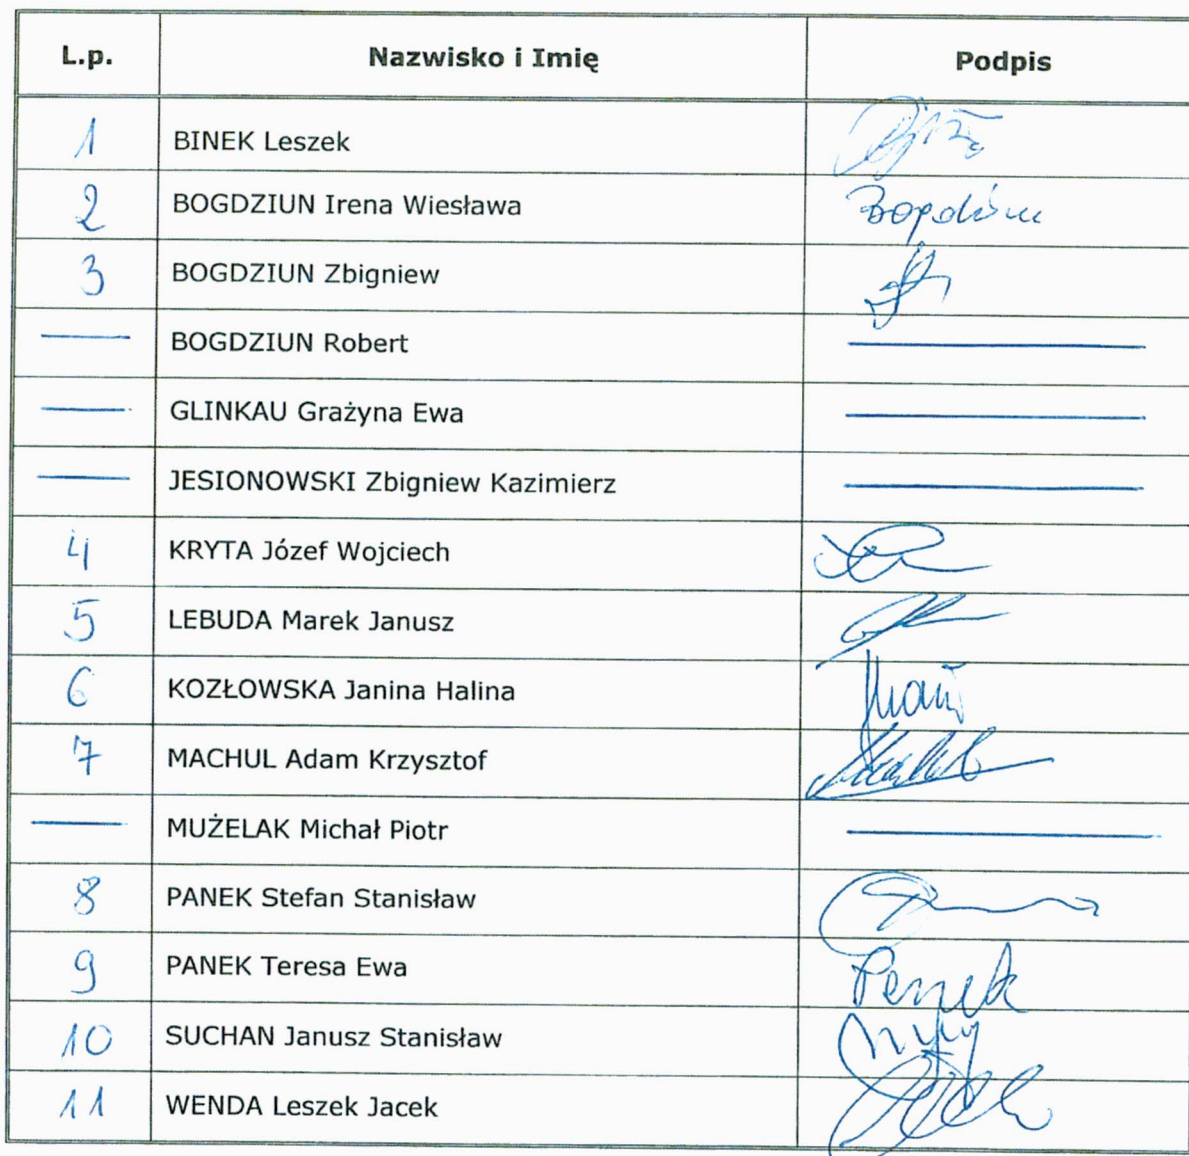 L.p. Nazwisko i Imię Podpis
1 BINEK Leszek
2 BOGDZIUN Irena Wiesława
3 BOGDZIUN Zbigniew
BOGDZIUN Robert
GLINKAU Grażyna Ewa
JESIONOWSKI Zbigniew Kazimierz
4 KRYTA Józef Wojciech
5 LEBUDA Marek Janusz
6 KOZŁOWSKA Janina Halina
7 MACHUL Adam Krzysztof
MUŻELAK Michał Piotr
8 PANEK Stefan Stanisław
9 PANEK Teresa Ewa
10 SUCHAN Janusz Stanisław
11 WENDA Leszek Jacek